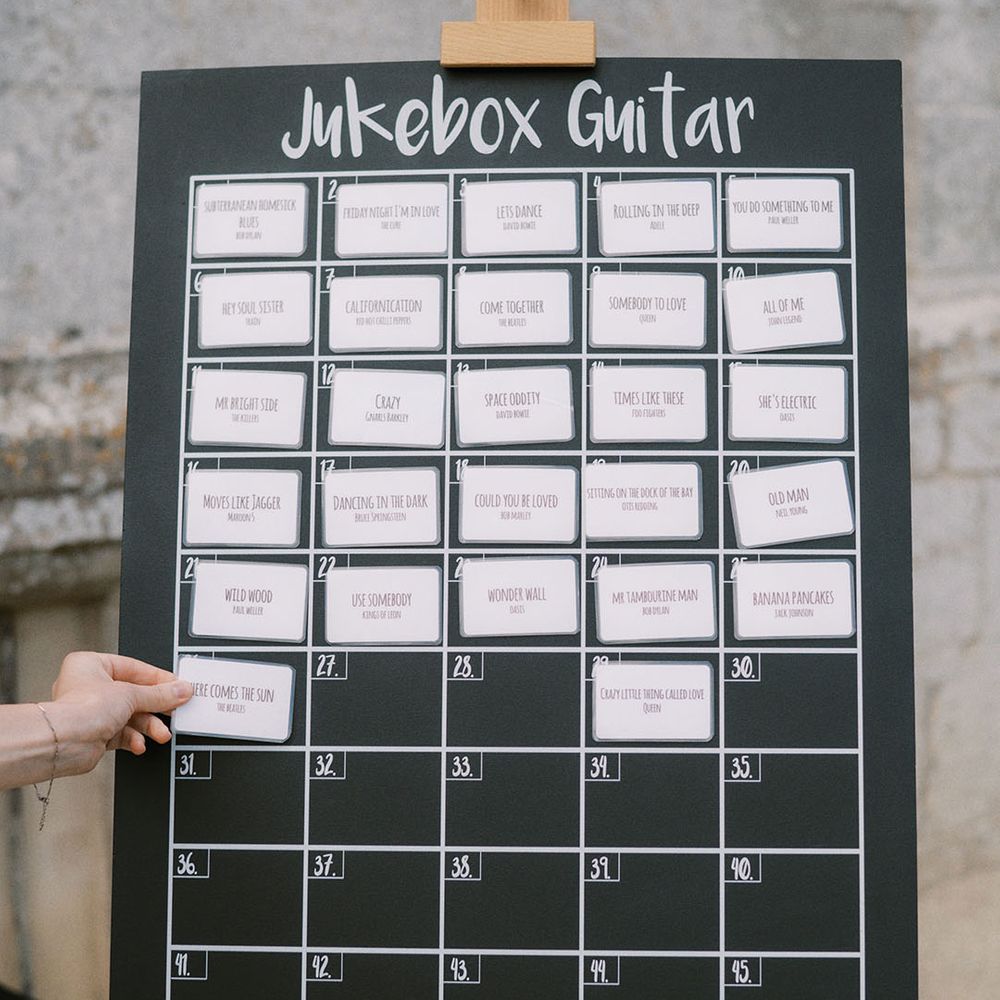 Jukebox Guitar
SUBTERRANEAN HOMESICK
BLUES
BOB DYLAN
2.
FRIDAY NIGHT I'M IN LOVE
THE CURE
3
LETS DANCE
DAVID BOWIE
4
ROLLING IN THE DEEP
ADELE
5
YOU DO SOMETHING TO ME
PAUL WELLER
6
HEY SOUL SISTER
TRAIN
7
CALIFORNICATION
RED HOT CHILLI PEPPERS
8
COME TOGETHER
THE BEATLES
9
SOMEBODY TO LOVE
QUEEN
10
ALL OF ME
JOHN LEGEND
11
MR BRIGHT SIDE
THE KILLERS
12
CRAZY
GNARLS BARKLEY
13
SPACE ODDITY
DAVID BOWIE
14
TIMES LIKE THESE
FOO FIGHTERS
15
SHE'S ELECTRIC
OASIS
16
MOVES LIKE JAGGER
MAROON'5
17
DANCING IN THE DARK
BRUCE SPRINGSTEIN
18
COULD YOU BE LOVED
BOB MARLEY
19
SITTING ON THE DOCK OF THE BAY
OTIS REDDING
20
OLD MAN
NEIL YOUNG
21
WILD WOOD
PAUL WELLER
22
USE SOMEBODY
KINGS OF LEON
2
WONDER WALL
OASIS
24
MR TAMBOURINE MAN
BOB DYLAN
25
BANANA PANCAKES
JACK JOHNSON
HERE COMES THE SUN
THE BEATLES
27.
28.
29
CRAZY LITTLE THING CALLED LOVE
QUEEN
30.
31.
32.
33.
34.
35.
36.
37.
38.
39.
40.
41.
42.
43.
44.
45.